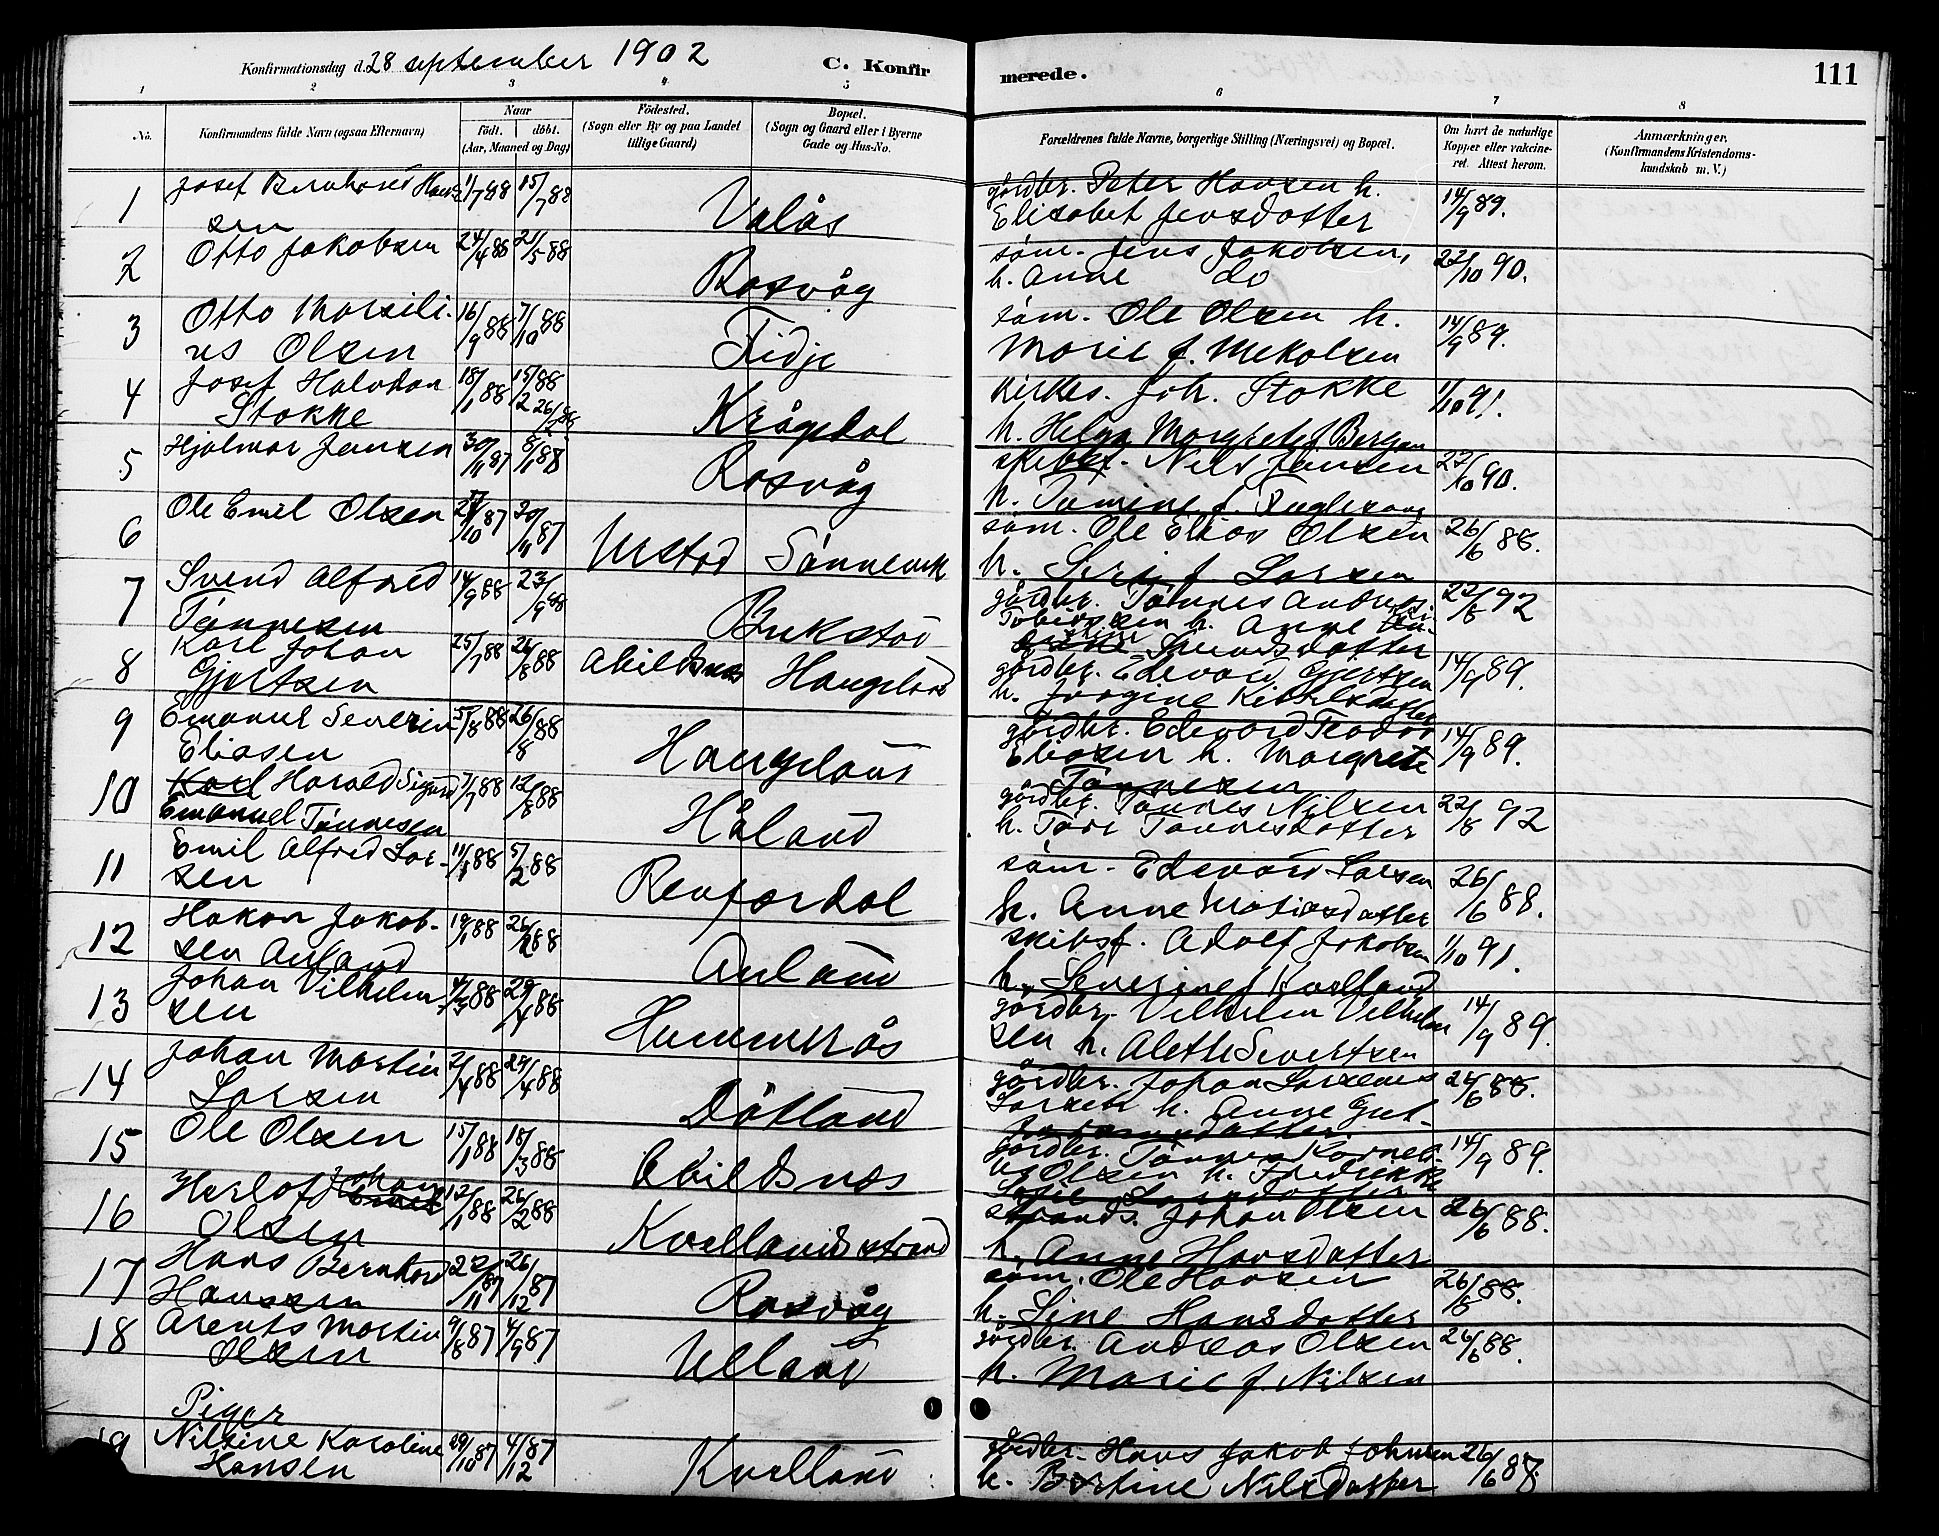 Konfirmationsdag d. 28 september 1902 C. Konfir merede. 111
1 2 3 4 5 6 7 8
No. Konfirmandens fulde Navn (ogsaa Efternavn) Naar födt. döbt. (Aar, Maaned og Dag) Födested. (Sogn eller By og paa Landet tillige Gaard) Bopæl. (Sogn og Gaard eller i Byerne Gade og Hus-No. Forældrenes fulde Navne, borgerlige Stilling (Næringsvei) og Bopæl. Om havt de naturlige Kopper eller vakcineret. Attest herom. Anmærkninger, (Konfirmandens Kristendomskundskab m. V.)
1 Josef Bernhard Hansen 1/7 88 15/7 88 Valås gårdbr. Peter Hansen h. Elisabet Jensdatter 14/9 89.
2 Otto Jakobsen 24/4 88 21/5 88 Rasvåg söm. Jens Jakobsen, h. Anne do 22/10 90.
3 Otto Marsilius Olsen 16/9 88 7/10 88 Fidje söm. Ole Olsen h. Marie f. Mekalsen 14/9 89.
4 Josef Halvdan Stokke 18/1 88 15/2 88 26/2 88 Krågedal kirkes. Joh. Stokke h. Helga Margrete f. Bergan 1/10 91.
5 Hjalmar Jansen 30/11 87 8/1 88 Rasvåg skibsf. Nils Jansen h. Tamine f. 22/10 90.
6 Ole Emil Olsen /10 87 20/11 87 Urstad Sånnevik söm. Ole Elias Olsen h. Siri f. Larsen 26/6 88.
7 Svend Alfred Tönnesen 14/9 88 23/9 88 Bukstöd gårdbr. Tönnes Andreas Tobiassen h. Anne Svendsdatter 22/8 92
8 Karl Johan Gjertsen 25/7 88 26/8 88 Abildsnes Haugeland gårdbr. Edevard Gjertsen h. Jörgine Kittelsdatter 14/9 89.
9 Emanuel Severin Eliasen 5/8 88 26/8 88 Haugeland gårdbr. Edevard Teodor Eliasen h. Margrete Tönnesen 14/9 89.
10 Karl Harald Sigurd Emanuel Tönnesen 7/7 88 12/8 88 Håland gårdbr. Tönnes Nilsen h. Töre Tönnesdatter 22/8 92
11 Emil Alfred Larsen 11/1 88 5/2 88 Renfærdal söm. Edevard Larsen h. Anne Matiasdatter 26/6 88.
12 Hakon Jakobsen Anland 19/1 88 26/2 88 Anland skibsf. Adolf Jakobsen h. Severine f. Kvelland 1/10 91.
13 Johan Vilhelmsen 4/3 88 29/4 88 Hummerås gårdbr. Vilhelm Vilhelmsen h. Alette Sivertsen 14/9 89.
14 Johan Martin Larsen 2/4 88 29/4 88 Dåtland gårdbr. Johan Larsenes Larsen h. Anne 26/6 88.
15 Ole Olsen 15/1 88 18/3 88 Abildsnæs gårdbr. Tönnes Kornelius Olsen h. Fredrikke Larsdatter 14/9 89.
16 Herlof Johan Olsen 12/1 88 26/2 88 Kvellandsstrand strands. Johan Olsen h. Anne Hansdatter 26/6 88.
17 Hans Bernhard Hansen 22/11 87 26/12 87 Rasvåg söm. Ole Hansen h. Sine Hansdatter 26/8 88.
18 Arents Martin Olsen 9/8 87 4/9 87 Ulland gårdbr. Andreas Olsen h. Marie f. Nilsen 26/6 88.
Piger
19 Nilsine Karoline Hansen 29/10 87 4/12 87 Kvelland gårdbr. Hans Jakob Johnsen h. Bertine Nilsdatter 26/6 88.